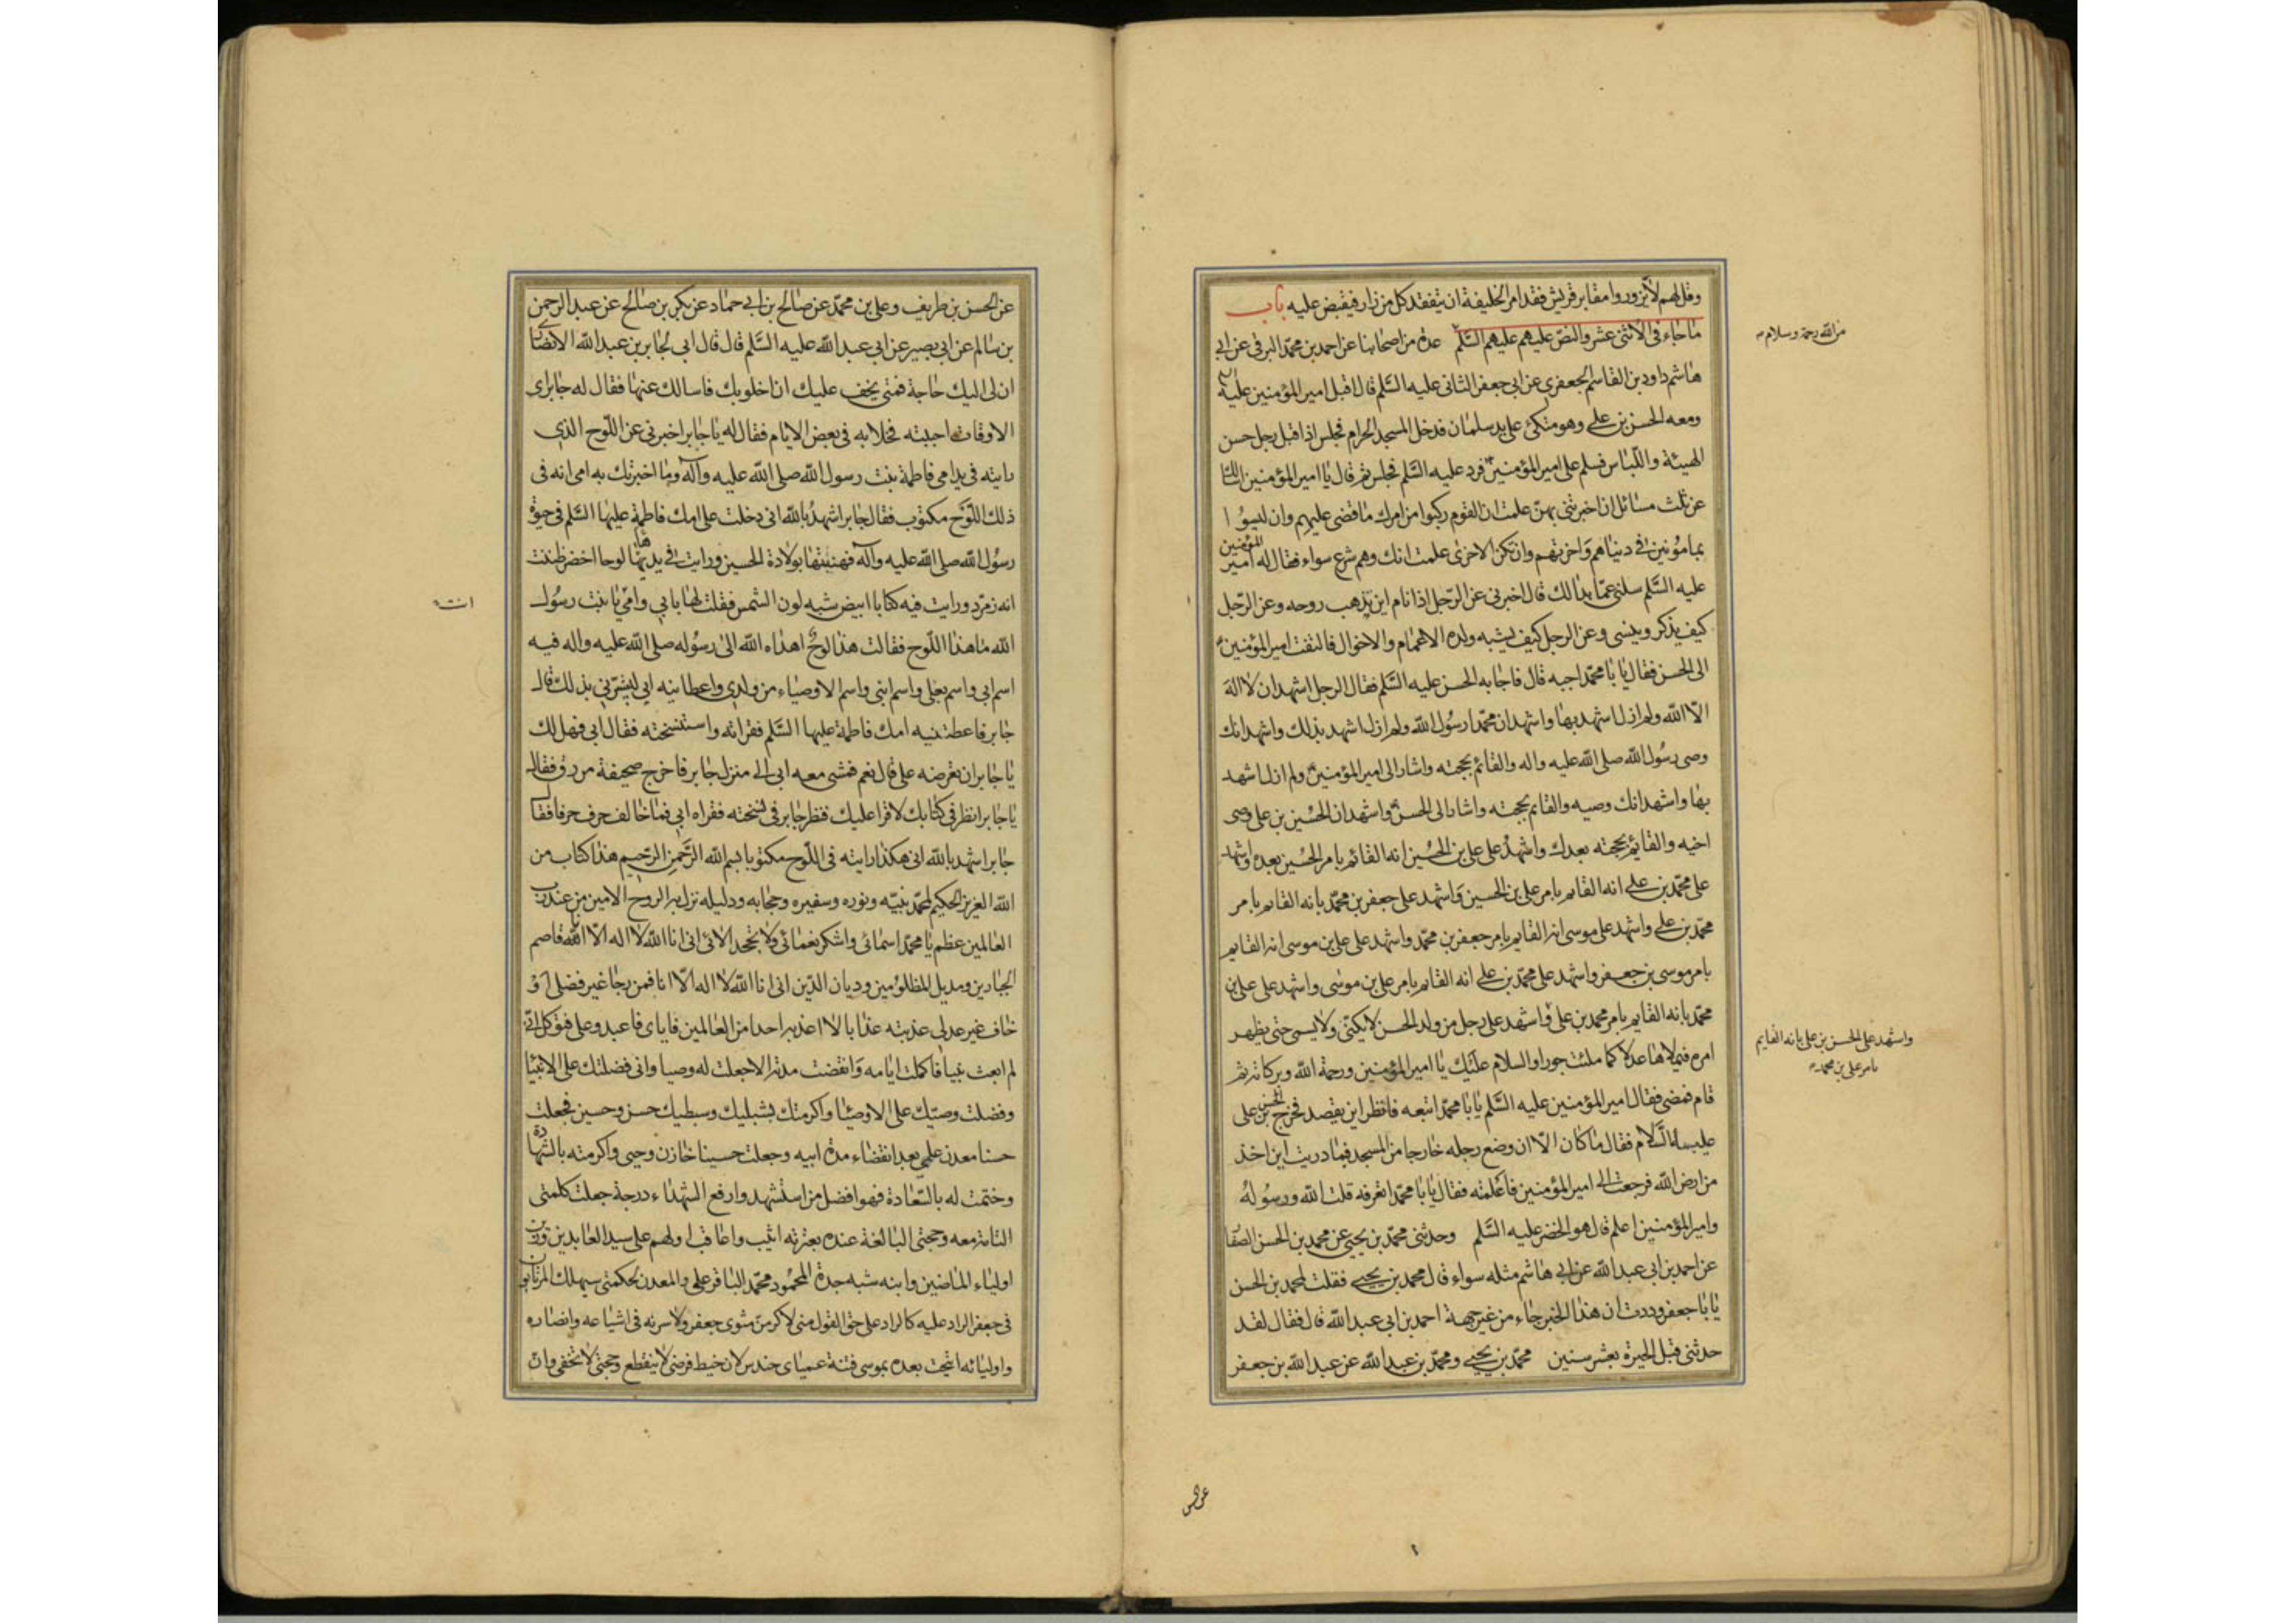 وقل لهم لا يزوروا مقابر قريش فقد امر الخليفة ان يتفقد كل من زار فيقبض عليه باب
ما جاء فى الاثنى عشر والنص عليهم عليهم السلم عدة من اصحابنا عن احمد بن محمد البرقى عن ابى
هاشم داود بن القاسم الجعفرى عن ابى جعفر الثانى عليه السلم قال اقبل امير المؤمنين عليه
ومعه الحسن بن على وهو متكئ على يد سلمان فدخل المسجد الحرام فجلس اذا قبل رجل حسن
الهيئة واللباس فسلم على امير المؤمنين فرد عليه السلم فجلس ثم قال يا امير المؤمنين
عن ثلث مسائل ان اخبرتنى بهن علمت ان القوم ركبوا من امرك ما قضى عليهم وان ليسوا
بمامونين فى دنياهم واخرتهم وان تكن الاخرى علمت انك وهم شرع سواء فقال له امير المؤمنين
عليه السلم سلنى عما بدا لك قال اخبرنى عن الرجل اذا نام اين تذهب روحه وعن الرجل
كيف يذكر وينسى وعن الرجل كيف يشبه ولده الاعمام والاخوال فالتفت امير المؤمنين
الى الحسن فقال يا با محمد اجبه قال فاجابه الحسن عليه السلم فقال الرجل اشهد ان لا اله
الا الله ولم ازل اشهد بها واشهد ان محمدا رسول الله ولم ازل اشهد بذلك واشهد انك
وصى رسول الله صلى الله عليه واله والقائم بحجته واشار الى امير المؤمنين ولم ازل اشهد
بها واشهد انك وصيه والقايم بحجته واشار الى الحسن واشهد ان الحسين بن على وصى
اخيه والقايم بحجته بعدك واشهد على على بن الحسين انه القائم بامر الحسين بعده واشهد
على محمد بن على انه القايم بامر على بن الحسين واشهد على جعفر بن محمد بانه القايم بامر
محمد بن على واشهد على موسى انه القايم بامر جعفر بن محمد واشهد على على بن موسى انه القايم
بامر موسى بن جعفر واشهد على محمد بن على انه القايم بامر على بن موسى واشهد على على بن
محمد بانه القايم بامر محمد بن على واشهد على رجل من ولد الحسن لا يكنى ولا يسمى حتى يظهر
امره فيملاها عدلا كما ملئت جورا والسلام عليك يا امير المؤمنين ورحمة الله وبركاته ثم
قام فمضى فقال امير المؤمنين عليه السلم يا با محمد اتبعه فانظر اين يقصد فخرج الحسن بن على
عليهما السلام فقال ما كان الا ان وضع رجله خارجا من المسجد فما دريت اين اخذ
من ارض الله فرجعت الى امير المؤمنين فاعلمته فقال يا با محمد اتعرفه قلت الله ورسوله
وامير المؤمنين اعلم قال هو الخضر عليه السلم وحدثنى محمد بن يحيى عن محمد بن الحسن الصفا
عن احمد بن ابى عبد الله عن ابى هاشم مثله سواء قال محمد بن يحيى فقلت لمحمد بن الحسن
يا با جعفر وددت ان هذا الخبر جاء من غير جهة احمد بن ابى عبد الله قال فقال لقد
حدثنى قبل الحيرة بعشر سنين محمد بن يحيى ومحمد بن عبد الله عن عبد الله بن جعفر
من الله رحمة وسلام
واشهد على الحسن بن على بانه القايم
بامر على بن محمد
عن الحسن
عن الحسن بن طريف وعلى بن محمد عن صالح بن ابى حماد عن بكر بن صالح عن عبد الرحمن
بن سالم عن ابى بصير عن ابى عبد الله عليه السلم قال قال ابى لجابر بن عبد الله الانصارى
ان لى اليك حاجة فمتى يخف عليك ان اخلو بك فاسالك عنها فقال له جابر اى
الاوقات احببته فخلا به فى بعض الايام فقال له يا جابر اخبرنى عن اللوح الذى
رايته فى يد امى فاطمة بنت رسول الله صلى الله عليه وآله وما اخبرتك به امى انه فى
ذلك اللوح مكتوب فقال جابر اشهد بالله انى دخلت على امك فاطمة عليها السلم فى حيوة
رسول الله صلى الله عليه وآله فهنيتها بولادة الحسين ورايت فى يديها لوحا اخضر ظننت
انه زمرد ورايت فيه كتابا ابيض شبه لون الشمس فقلت لها بابى وامى يا بنت رسول
الله ما هذا اللوح فقالت هذا لوح اهداه الله الى رسوله صلى الله عليه واله فيه
اسم ابى واسم بعلى واسم ابنى واسم الاوصياء من ولدى واعطانيه ابى ليبشرنى بذلك قال
جابر فاعطتنيه امك فاطمة عليها السلم فقراته واستنسخته فقال ابى فهل لك
يا جابر ان تعرضه على قال نعم فمشى معه ابى الى منزل جابر فاخرج صحيفة من رق فقال
يا جابر انظر فى كتابك لاقرا عليك فنظر جابر فى نسخته فقراه ابى فما خالف حرف حرفا فقال
جابر اشهد بالله انى هكذا رايته فى اللوح مكتوبا بسم الله الرحمن الرحيم هذا كتاب من
الله العزيز الحكيم لمحمد نبيه ونوره وسفيره وحجابه ودليله نزل به الروح الامين من عند رب
العالمين عظم يا محمد اسمائى واشكر نعمائى ولا تجحد الائى انى انا الله لا اله الا الله قاصم
الجبارين ومديل المظلومين وديان الدين انى انا الله لا اله الا انا فمن رجا غير فضلى او
خاف غير عدلى عذبته عذابا لا اعذبه احدا من العالمين فاياى فاعبد وعلى فتوكل انى
لم ابعث نبيا فاكملت ايامه وانقضت مدته الا جعلت له وصيا وانى فضلتك على الانبيا
وفضلت وصيك على الاوصيا واكرمتك بشبليك وسبطيك حسن وحسين فجعلت
حسنا معدن علمى بعد انقضاء مدة ابيه وجعلت حسينا خازن وحيى واكرمته بالشهادة
وختمت له بالسعادة فهو افضل من استشهد وارفع الشهداء درجة جعلت كلمتى
التامة معه وحجتى البالغة عنده بعترته اثيب واعاقب اولهم على سيد العابدين وزين
اولياء الماضين وابنه شبه جده المحمود محمد الباقر علمى والمعدن لحكمتى سيهلك المرتابون
فى جعفر الراد عليه كالراد على حق القول منى لاكرمن مثوى جعفر ولاسرنه فى اشياعه وانصاره
واوليائه اتيحت بعده بموسى فتنة عمياى حندس لان خيط فرضى لا ينقطع وحجتى لا تخفى وان